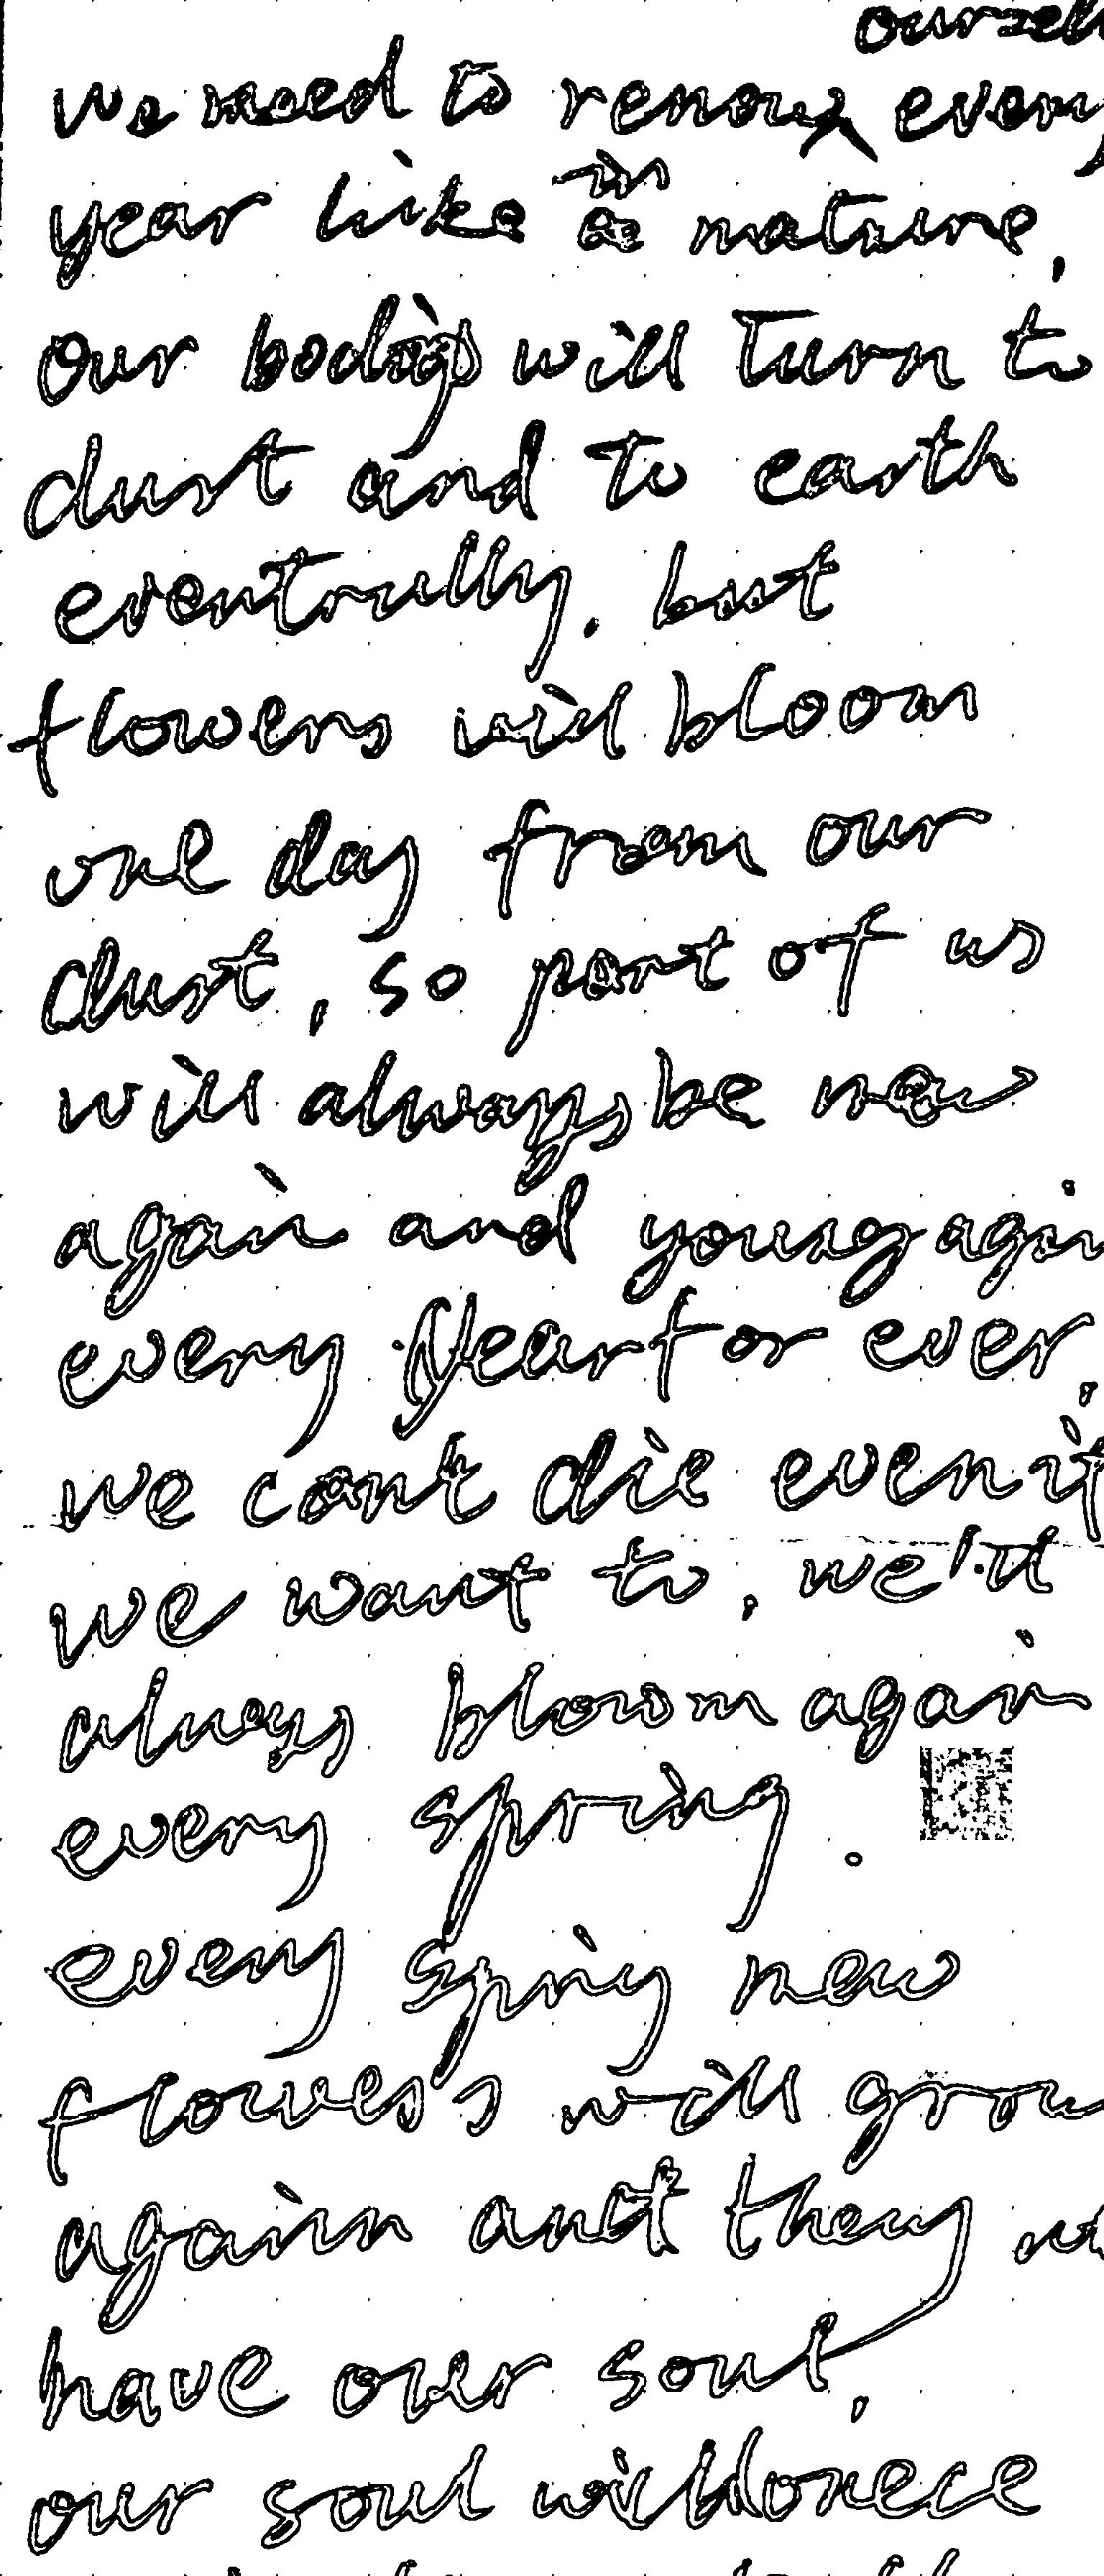 oursel
we need to renew every
year like in nature,
our bodys will turn to
dust and to earth
eventually. but
flowers will bloom
one day from our
dust, so part of us
will always be new
again and young again
every year for ever,
we can't die even if
we want to, we'll
always bloom again
every spring.
every spring new
flowers will grow
again and they
have our soul,
our soul will